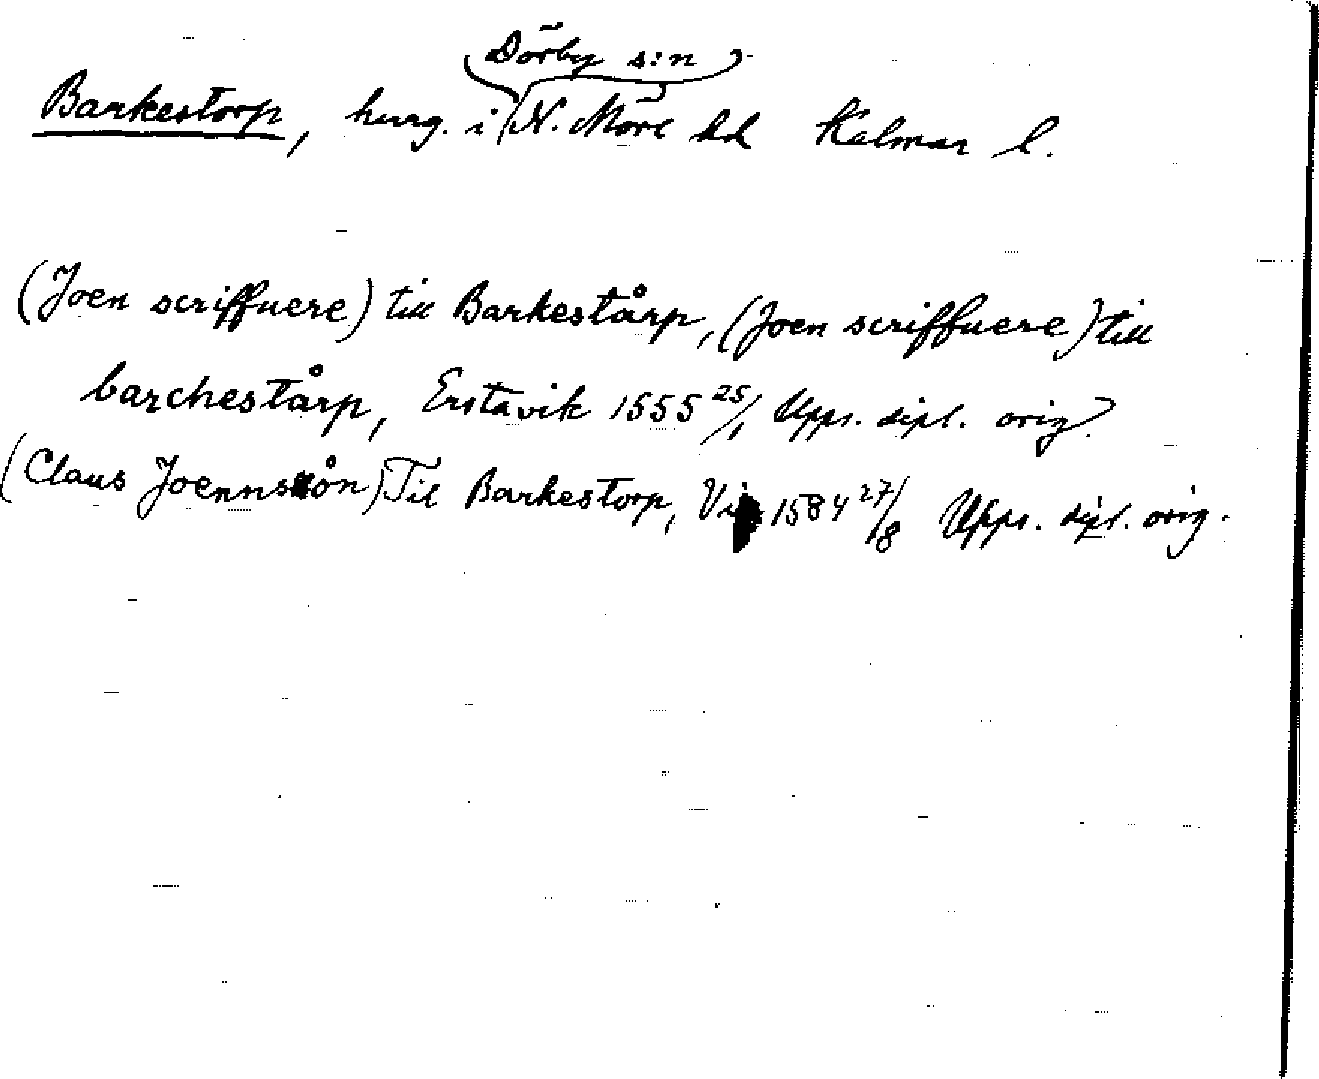 Dörby s:n
Barkestorp, herrg. i N. Möre hd Kalmar l.
(Joen scriffuere) till Barkestårp, (Joen scriffuere) till
barchestårp, Erstavik 1555 25/1 Upps. dipl. orig.
(Claus Joennsån) Til Barkestorp, 1584 27/8 Upps. dipl. orig.